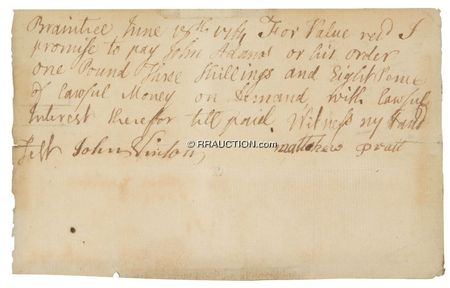 Braintree June 18th 1764 For Value recd I
promise to pay John Adams or his order
one Pound Three Shillings and Eight Pence
of Lawful Money on Demand, with Lawful
Interest therefor till paid Witness my hand
Test John Vinton, Matthew Pratt
© RRAUCTION.COM